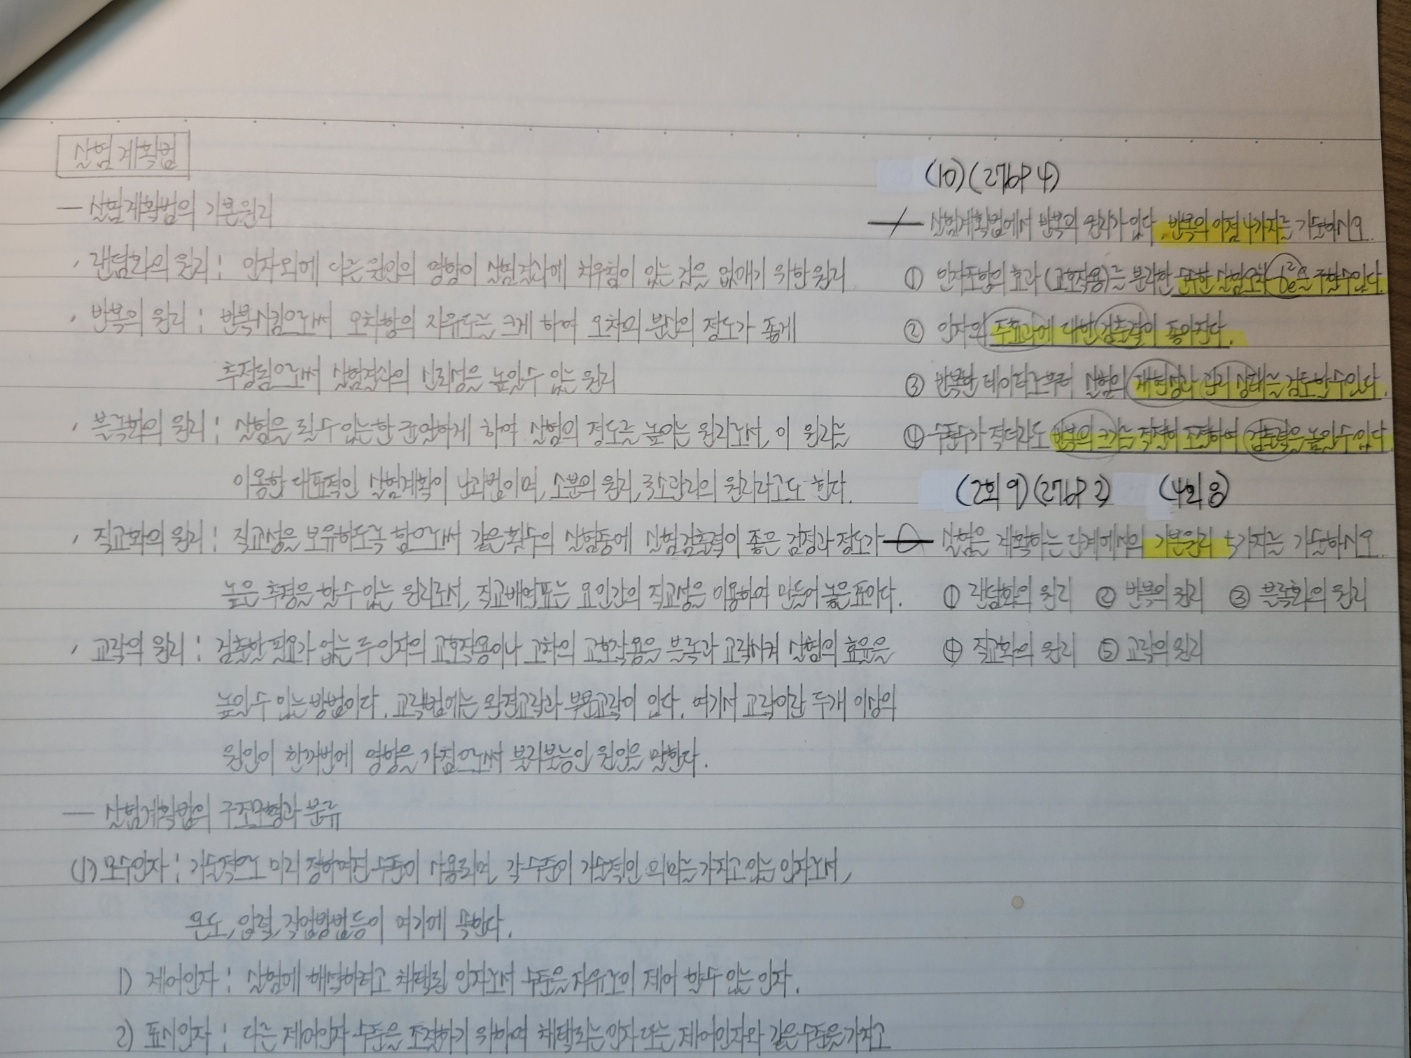 실험계획법
— 실험계획법의 기본원리
· 랜덤화의 원리 : 인자외에 다른 원인의 영향이 실험결과에 치우침이 있는 것을 없애기 위한 원리
· 반복의 원리 : 반복시킴으로써 오차항의 자유도를 크게 하여 오차의 분산의 정도가 좋게
추정됨으로써 실험결과의 신뢰성을 높일수 있는 원리
· 블록화의 원리 : 실험을 될수 있는한 균일하게 하여 실험의 정도를 높이는 원리로서, 이 원리를
이용한 대표적인 실험계획이 난괴법이며, 소분의 원리, 국소관리의 원리라고도 한다.
· 직교화의 원리 : 직교성을 보유하도록 함으로써 같은 횟수의 실험중에 실험검출력이 좋은 검정과 정도가
높은 추정을 할수 있는 원리로서, 직교배열표는 요인간의 직교성을 이용하여 만들어 놓은 표이다.
· 교락의 원리 : 검출할 필요가 없는 두 인자의 교호작용이나 고차의 교호작용을 블록과 교락시켜 실험의 효율을
높일수 있는 방법이다. 교락법에는 완전교락과 부분교락이 있다. 여기서 교락이란 두개 이상의
원인이 한꺼번에 영향을 가짐으로써 분리불능인 원인을 말한다.
— 실험계획법의 구조모형과 분류
(1) 모수인자 : 기술적으로 미리 정하여진 수준이 사용되며, 각 수준이 기술적인 의미를 가지고 있는 인자로서,
온도, 압력, 작업방법등이 여기에 속한다.
1) 제어인자 : 실험에 해석하려고 채택된 인자로서 수준을 자유로이 제어 할수 있는 인자.
2) 표시인자 : 다른 제어인자 수준을 조절하기 위하여 채택되는 인자 다른 제어인자와 같은 수준을 가지고
(10) (276P 4)
실험계획법에서 반복의 원리가 있다. 반복의 이점 4가지를 기술하시오.
① 인자조합의 효과 (교호작용)를 분리한 순수한 실험오차 σe²을 구할수있다.
② 인자의 주효과에 대한 검출력이 좋아진다.
③ 반복한 데이터로부터 실험의 재현성과 관리 상태를 검토할수있다.
④ 수준수가 적더라도 반복의 크기를 적절히 조절하여 검출력을 높일수 있다.
(2회 9) (276P 2) (4회 8)
실험을 계획하는 단계에서의 기본원리 5가지를 기술하시오.
① 랜덤화의 원리 ② 반복의 원리 ③ 블록화의 원리
④ 직교화의 원리 ⑤ 교락의 원리